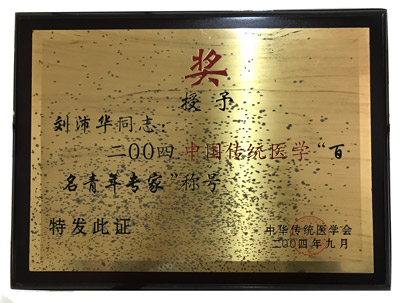 奖
授予
刘沛华同志：
二00四中国传统医学“百
名青年专家”称号
特发此证
中华传统医学会
二00四年九月